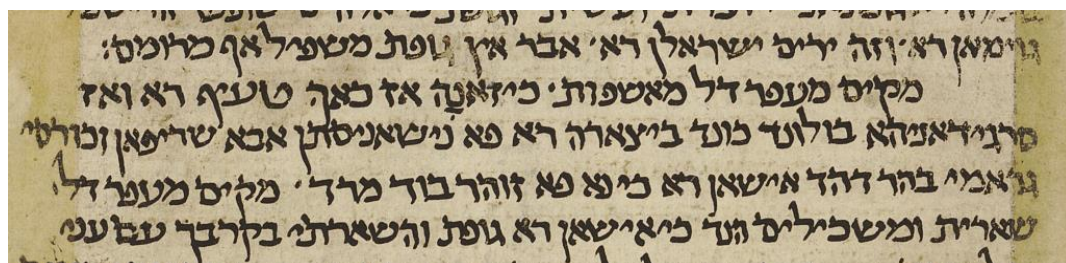 רא וזה ירים ישראלן רא · אבר אין גופת משפיל אף מרומם:
מקים מעפר דל מאשפות · כיזאנה אז כאך טעיף רא ואז
סרגידאניהא בולונד כונד ביצארה רא פא נישאניסתן אבא שריפאן וכורסי
גראמי בהר דהד אישאן רא כי פא זוהר בוד מרד · מקים מעפר דל
שארית ומשכילים הנד כי אישאן רא גופת והשארתי בקרבך עם עני